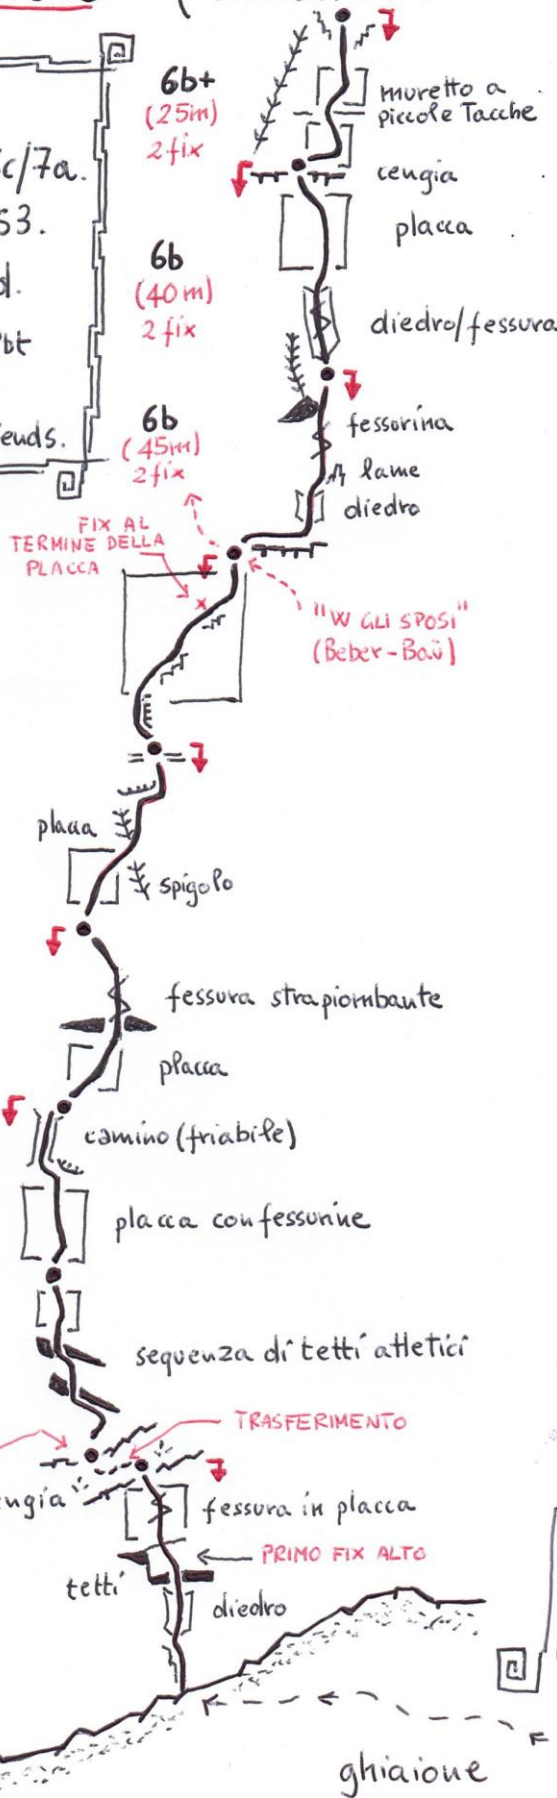 6b+
(25m)
2 fix
muretto a
piccole Tacche
cengia
placca
c/7a.
53.
6b
(40m)
2 fix
diedro/fessura
6b
(45m)
2 fix
fessorina
lame
diedro
FIX AL
TERMINE DELLA
PLACCA
"W GLI SPOSI"
(Beber-Baù)
placca
spigolo
fessura strapiombante
placca
camino (friabile)
placca con fessurine
sequenza di tetti atletici
TRASFERIMENTO
engia
fessura in placca
PRIMO FIX ALTO
tetti
diedro
ghiaione